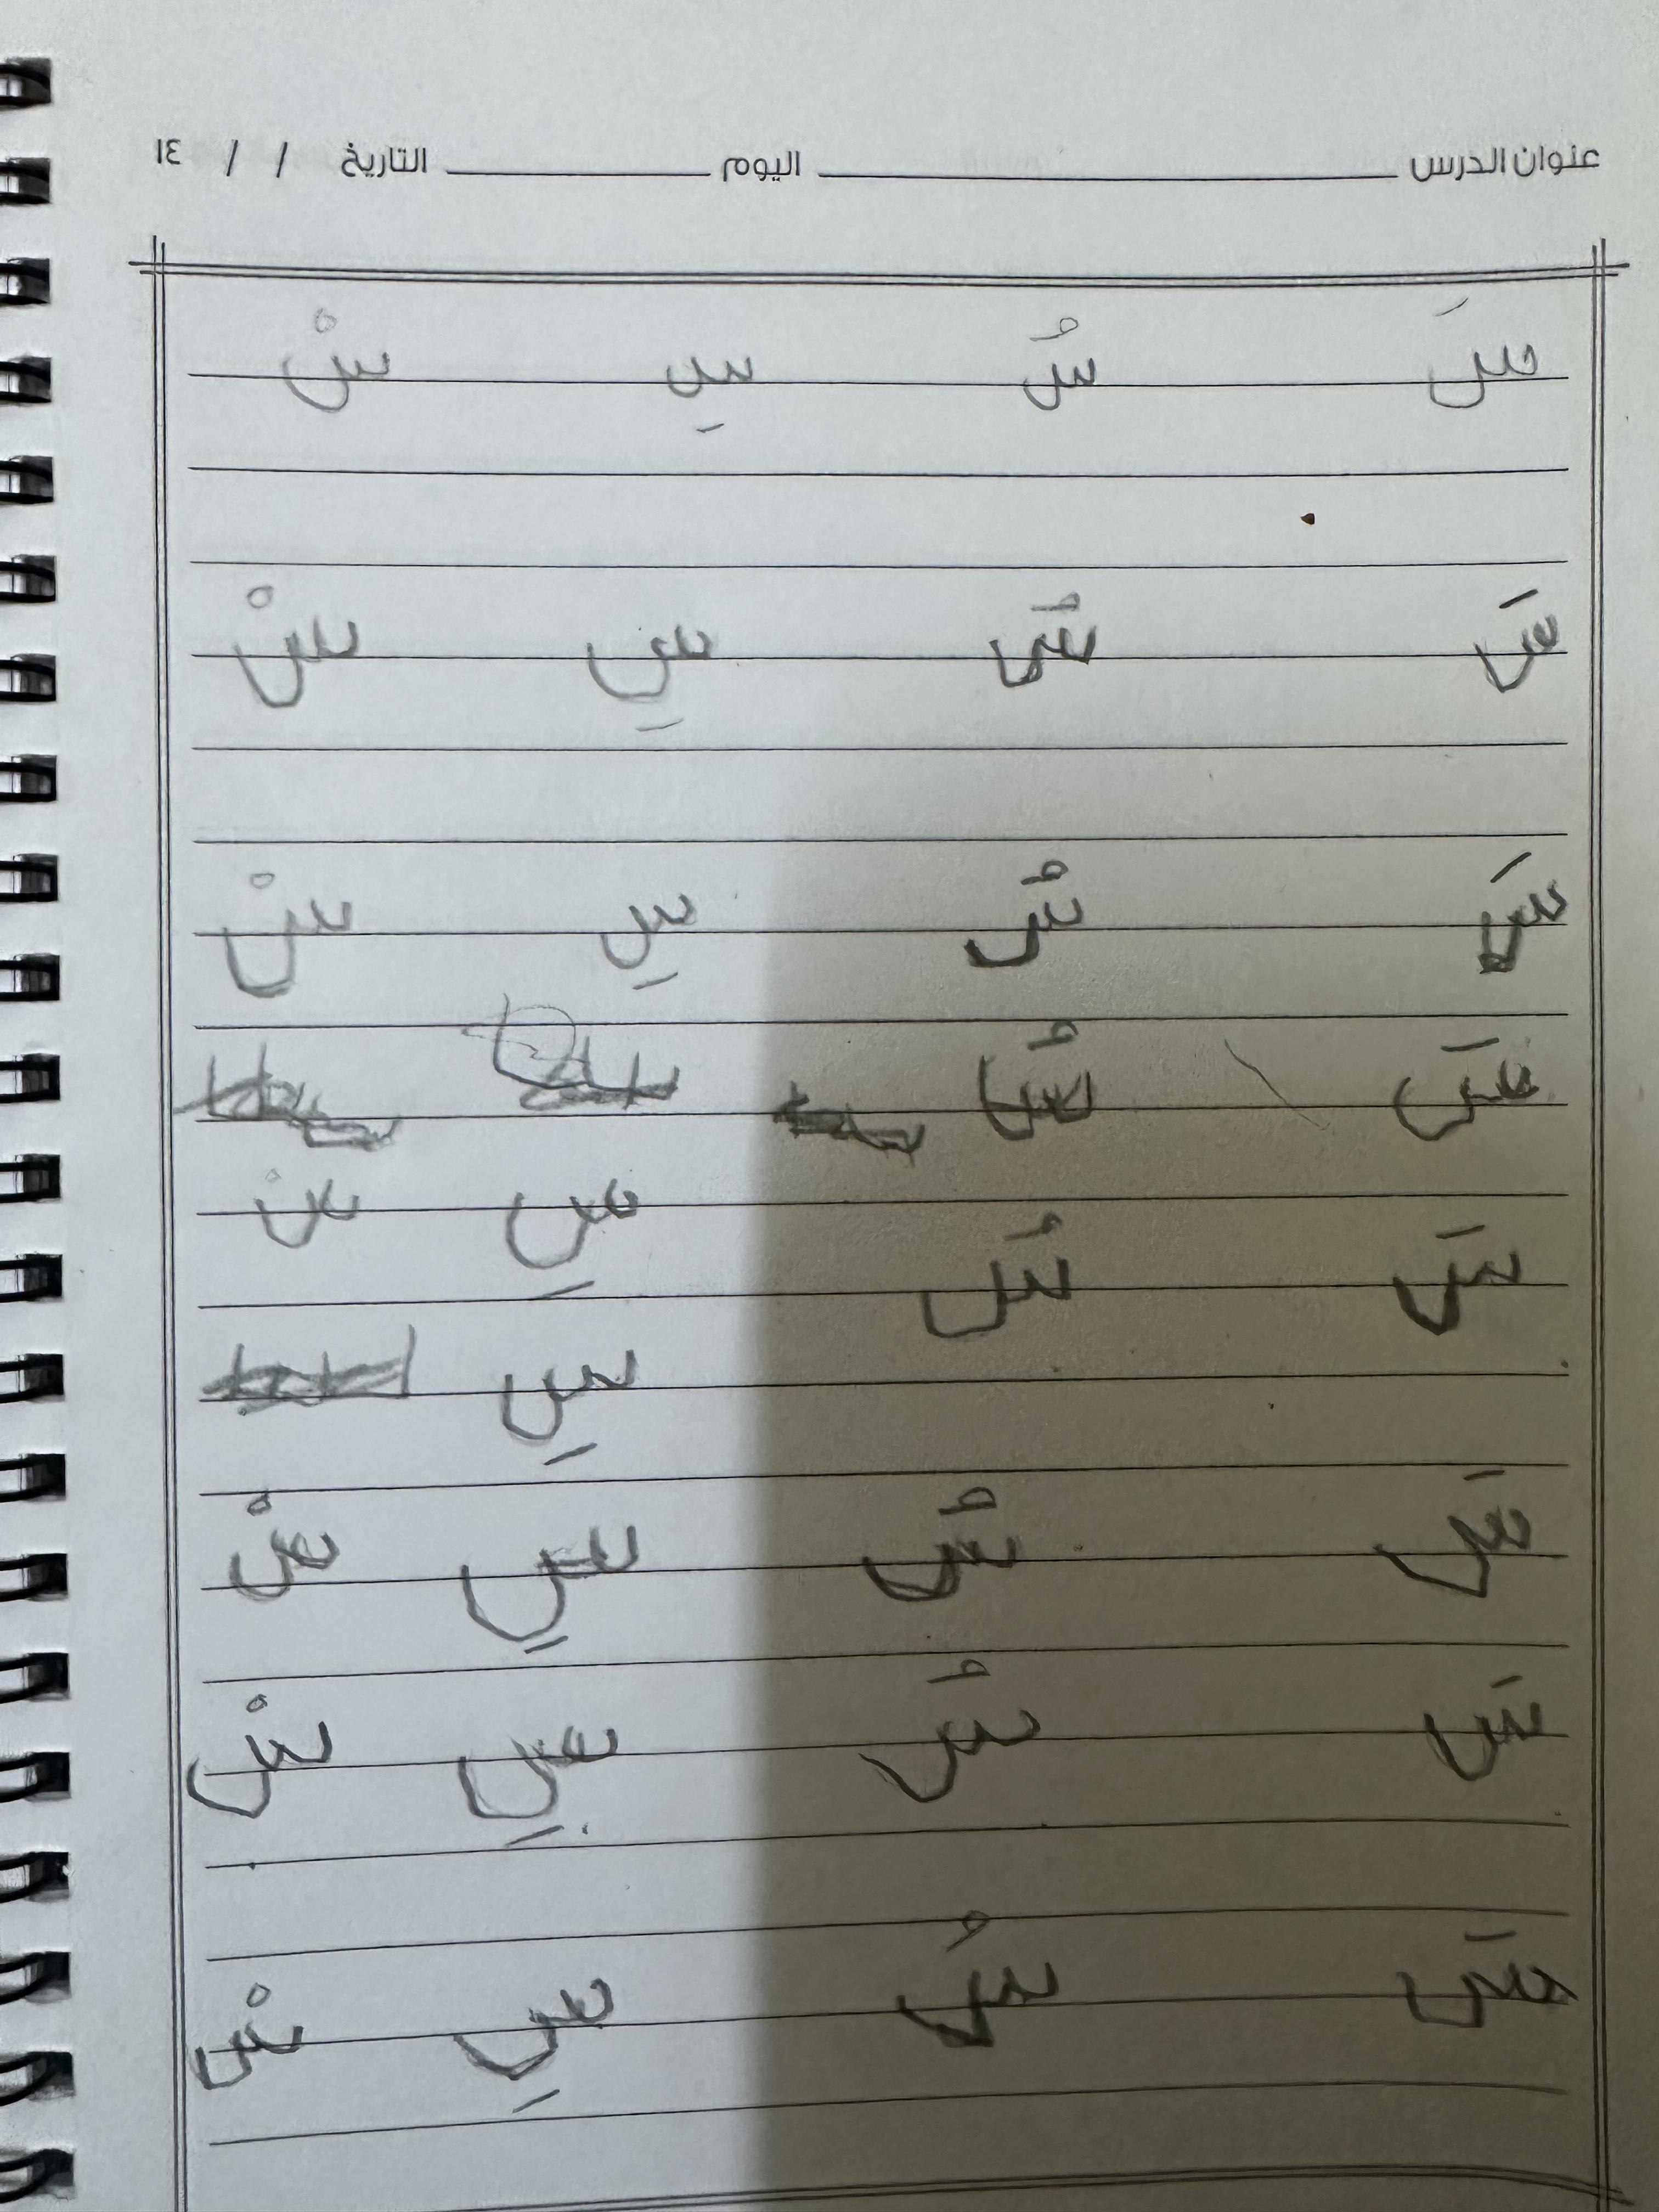 عنوان الدرس اليوم التاريخ / / ١٤
سَ سُ سِ سْ
سَ سُ سِ سْ
سَ سُ سِ سْ
سَ سُ
سِ سْ
سَ سُ
سِ
سَ سُ سِ سْ
سَ سُ سِ سْ
سَ سُ سِ سْ